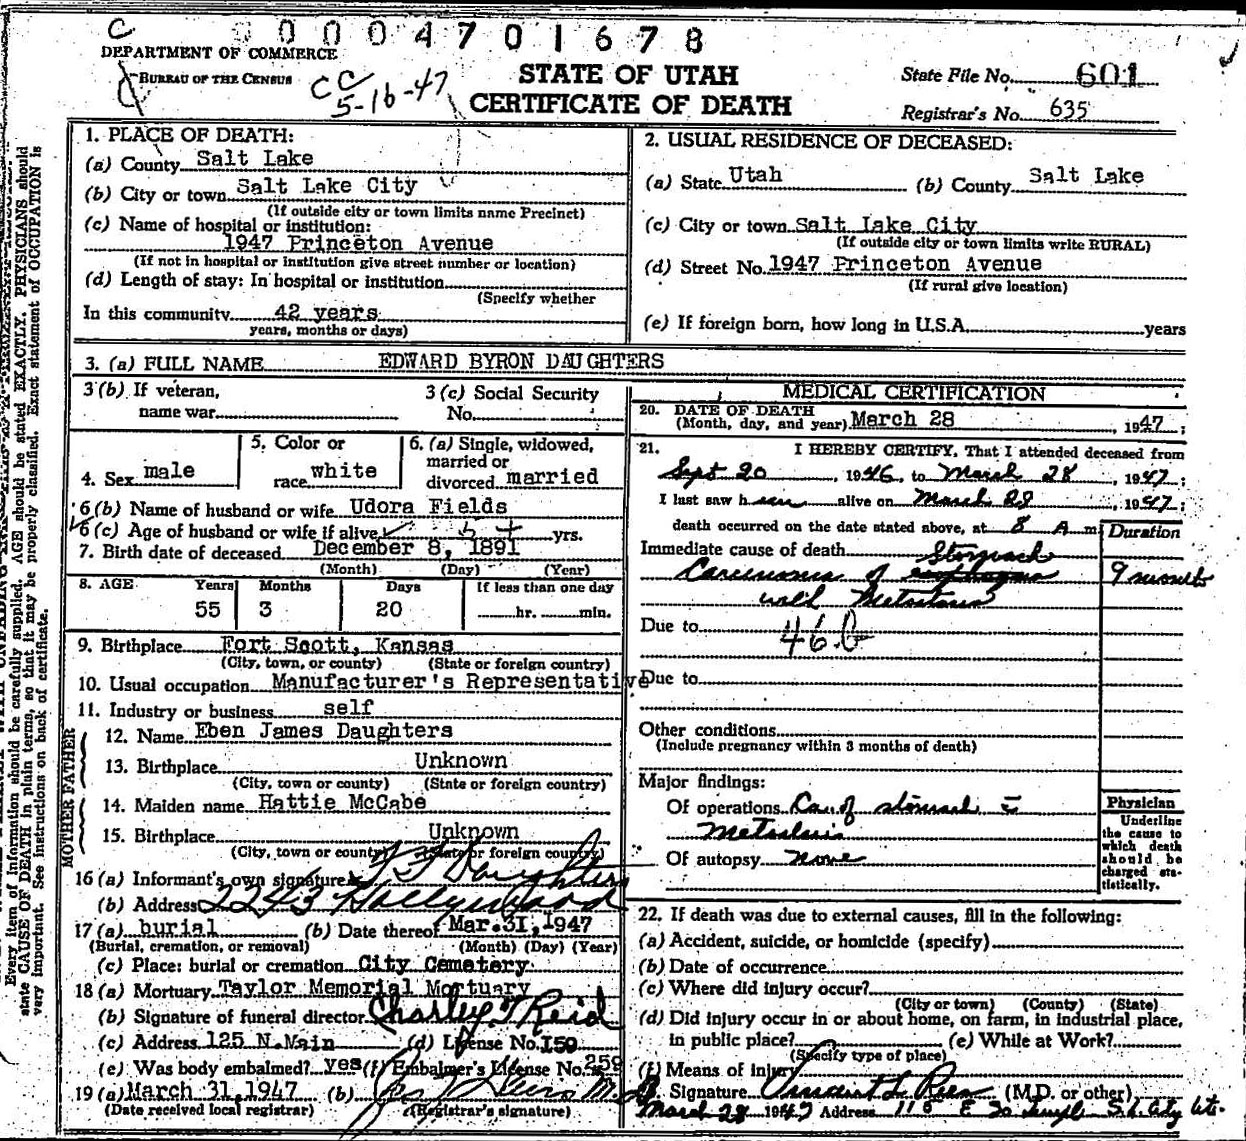 C 0 0 0 0 4 7 0 1 6 7 8
DEPARTMENT OF COMMERCE
BUREAU OF THE CENSUS
CC
5-16-47
STATE OF UTAH
CERTIFICATE OF DEATH
State File No. 601
Registrar's No. 635
Every item of information should be carefully supplied. AGE should be stated EXACTLY. PHYSICIANS should
state CAUSE OF DEATH in plain terms, so that it may be properly classified. Exact statement of OCCUPATION is
very important. See instructions on back of certificate.
1. PLACE OF DEATH:
(a) County Salt Lake
(b) City or town Salt Lake City
(If outside city or town limits name Precinct)
(c) Name of hospital or institution:
1947 Princeton Avenue
(If not in hospital or institution give street number or location)
(d) Length of stay: In hospital or institution
(Specify whether
In this community 42 years
years, months or days)
2. USUAL RESIDENCE OF DECEASED:
(a) State Utah (b) County Salt Lake
(c) City or town Salt Lake City
(If outside city or town limits write RURAL)
(d) Street No. 1947 Princeton Avenue
(If rural give location)
(e) If foreign born, how long in U.S.A. years
3. (a) FULL NAME EDWARD BYRON DAUGHTERS
3 (b) If veteran,
name war
3 (c) Social Security
No.
4. Sex male
5. Color or
race white
6. (a) Single, widowed,
married or
divorced married
6 (b) Name of husband or wife Udora Fields
6 (c) Age of husband or wife if alive yrs.
7. Birth date of deceased December 8, 1891
(Month) (Day) (Year)
8. AGE Years Months Days If less than one day
55 3 20 hr. min.
9. Birthplace Fort Scott, Kansas
(City, town, or county) (State or foreign country)
10. Usual occupation Manufacturer's Representative
11. Industry or business self
FATHER
12. Name Eben James Daughters
13. Birthplace Unknown
(City, town or county) (State or foreign country)
MOTHER
14. Maiden name Hattie McCabe
15. Birthplace Unknown
(City, town or county) (State or foreign country)
16 (a) Informant's own signature Daughters
(b) Address 2243 Hollywood
17 (a) burial (b) Date thereof Mar.31,1947
(Burial, cremation, or removal) (Month) (Day) (Year)
(c) Place: burial or cremation City Cemetery
18 (a) Mortuary Taylor Memorial Mortuary
(b) Signature of funeral director Charley T Reid
(c) Address 125 N.Main (d) License No. I50
(e) Was body embalmed? yes (f) Embalmer's License No. 259
19 (a) March 31,1947 (b)
(Date received local registrar) (Registrar's signature)
MEDICAL CERTIFICATION
20. DATE OF DEATH
(Month, day, and year) March 28, 1947;
21. I HEREBY CERTIFY, That I attended deceased from
Sept 20, 1946, to March 28, 1947;
I last saw h alive on March 28, 1947;
death occurred on the date stated above, at 8 A m.
Duration
Immediate cause of death Stomach
Carcinoma of esophagus 9 months
with Metastasis
Due to 46 b
Due to
Other conditions
(Include pregnancy within 3 months of death)
Major findings:
Of operations Ca. of stomach c̄
Metastasis
Of autopsy none
Physician
Underline
the cause to
which death
should be
charged sta-
tistically.
22. If death was due to external causes, fill in the following:
(a) Accident, suicide, or homicide (specify)
(b) Date of occurrence
(c) Where did injury occur?
(City or town) (County) (State)
(d) Did injury occur in or about home, on farm, in industrial place,
in public place? (e) While at Work?
(Specify type of place)
(f) Means of injury
Signature Vincent L Rees (M.D. or other)
March 28 1947 Address 116 E So Temple S.L. City Ut.